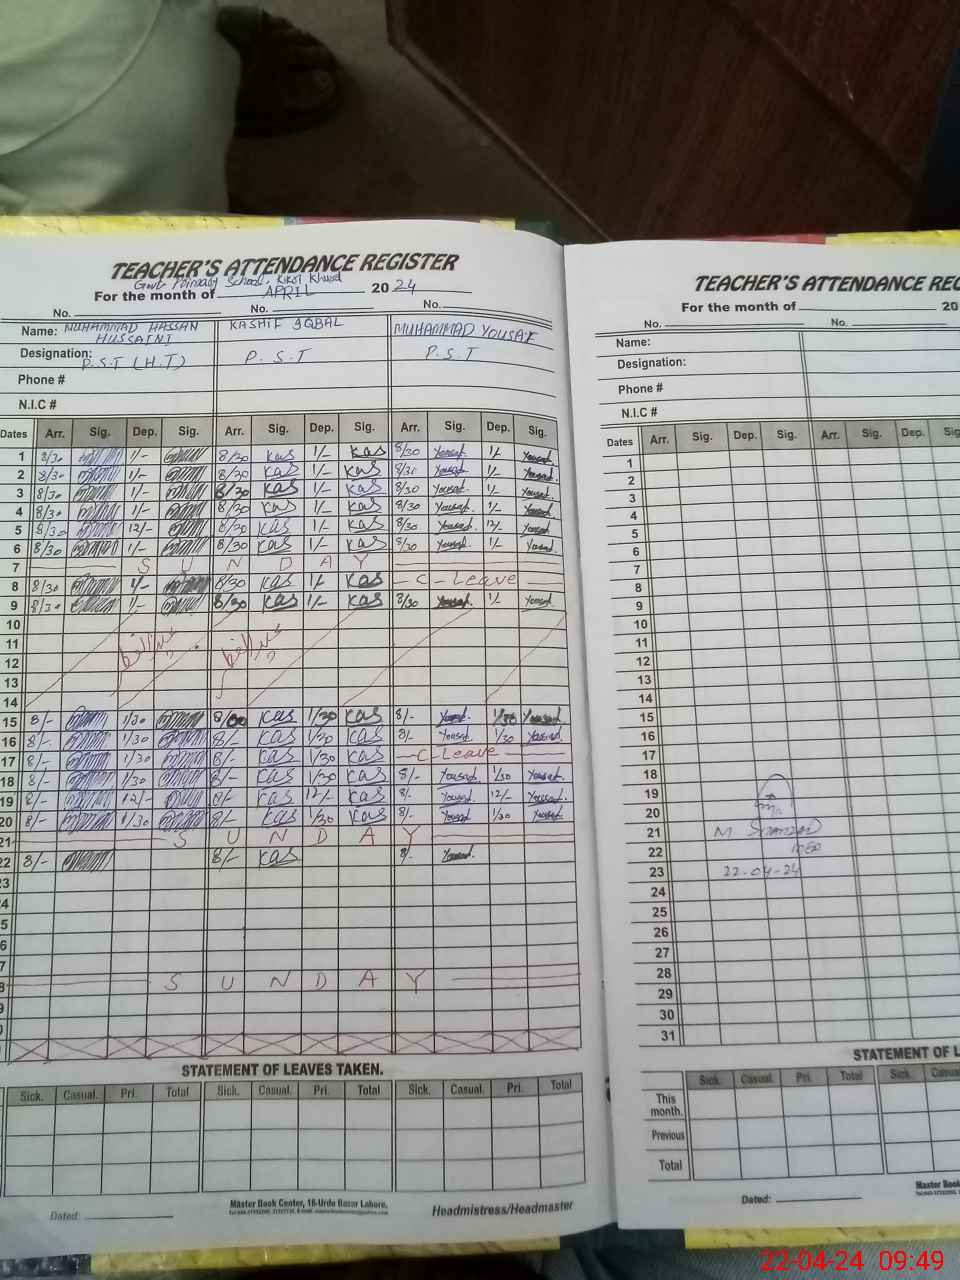 TEACHER'S ATTENDANCE REGISTER
Govt Primary School, Kirot Khurd
For the month of APRIL 2024
No. No. No.
Name: MUHAMMAD HASSAN HUSSAINI KASHIF IQBAL MUHAMMAD YOUSAF
Designation: P.S.T (H.T) P.S.T P.S.T
Phone #
N.I.C #
Dates Arr. Sig. Dep. Sig. Arr. Sig. Dep. Sig. Arr. Sig. Dep. Sig.
1 8/30 1/- 8/30 Kas 1/- Kas 8/30 Yousaf. 1/- Yousaf.
2 8/30 1/- 8/30 Kas 1/- Kas 8/30 Yousaf. 1/- Yousaf.
3 8/30 1/- 8/30 Kas 1/- Kas 8/30 Yousaf. 1/- Yousaf.
4 8/30 1/- 8/30 Kas 1/- Kas 8/30 Yousaf. 1/- Yousaf.
5 8/30 12/- 8/30 Kas 1/- Kas 8/30 Yousaf. 12/- Yousaf.
6 8/30 1/- 8/30 Kas 1/- Kas 8/30 Yousaf. 1/- Yousaf.
7 S U N D A Y
8 8/30 1/- 8/30 Kas 1/- Kas C-Leave
9 8/30 1/- 8/30 Kas 1/- Kas 8/30 Yousaf. 1/- Yousaf.
10
11 عیدالفطر عیدالفطر
12
13
14
15 8/- 1/30 8/00 Kas 1/30 Kas 8/- Yousaf. 1/30 Yousaf.
16 8/- 1/30 8/- Kas 1/30 Kas 8/- Yousaf. 1/30 Yousaf.
17 8/- 1/30 8/- Kas 1/30 Kas C-Leave
18 8/- 1/30 8/- Kas 1/30 Kas 8/- Yousaf. 1/30 Yousaf.
19 8/- 12/- 8/- Kas 12/- Kas 8/- Yousaf. 12/- Yousaf.
20 8/- 1/30 8/- Kas 1/30 Kas 8/- Yousaf. 1/30 Yousaf.
21 S U N D A Y
22 8/- 8/- Kas 8/- Yousaf.
23
4
5
6
7
8 S U N D A Y
9
0
STATEMENT OF LEAVES TAKEN.
Sick. Casual. Pri. Total Sick. Casual. Pri. Total Sick. Casual. Pri. Total
Master Book Center, 16-Urdu Bazar Lahore.
Dated: Headmistress/Headmaster
TEACHER'S ATTENDANCE REG
For the month of 20
No. No.
Name:
Designation:
Phone #
N.I.C #
Dates Arr. Sig. Dep. Sig. Arr. Sig. Dep. Sig.
1
2
3
4
5
6
7
8
9
10
11
12
13
14
15
16
17
18
19
20
21 M
22
23 22-04-24
24
25
26
27
28
29
30
31
STATEMENT OF L
Sick. Casual. Pri. Total Sick. Casua
This month.
Previous
Total
Master Book
Dated:
22-04-24 09:49